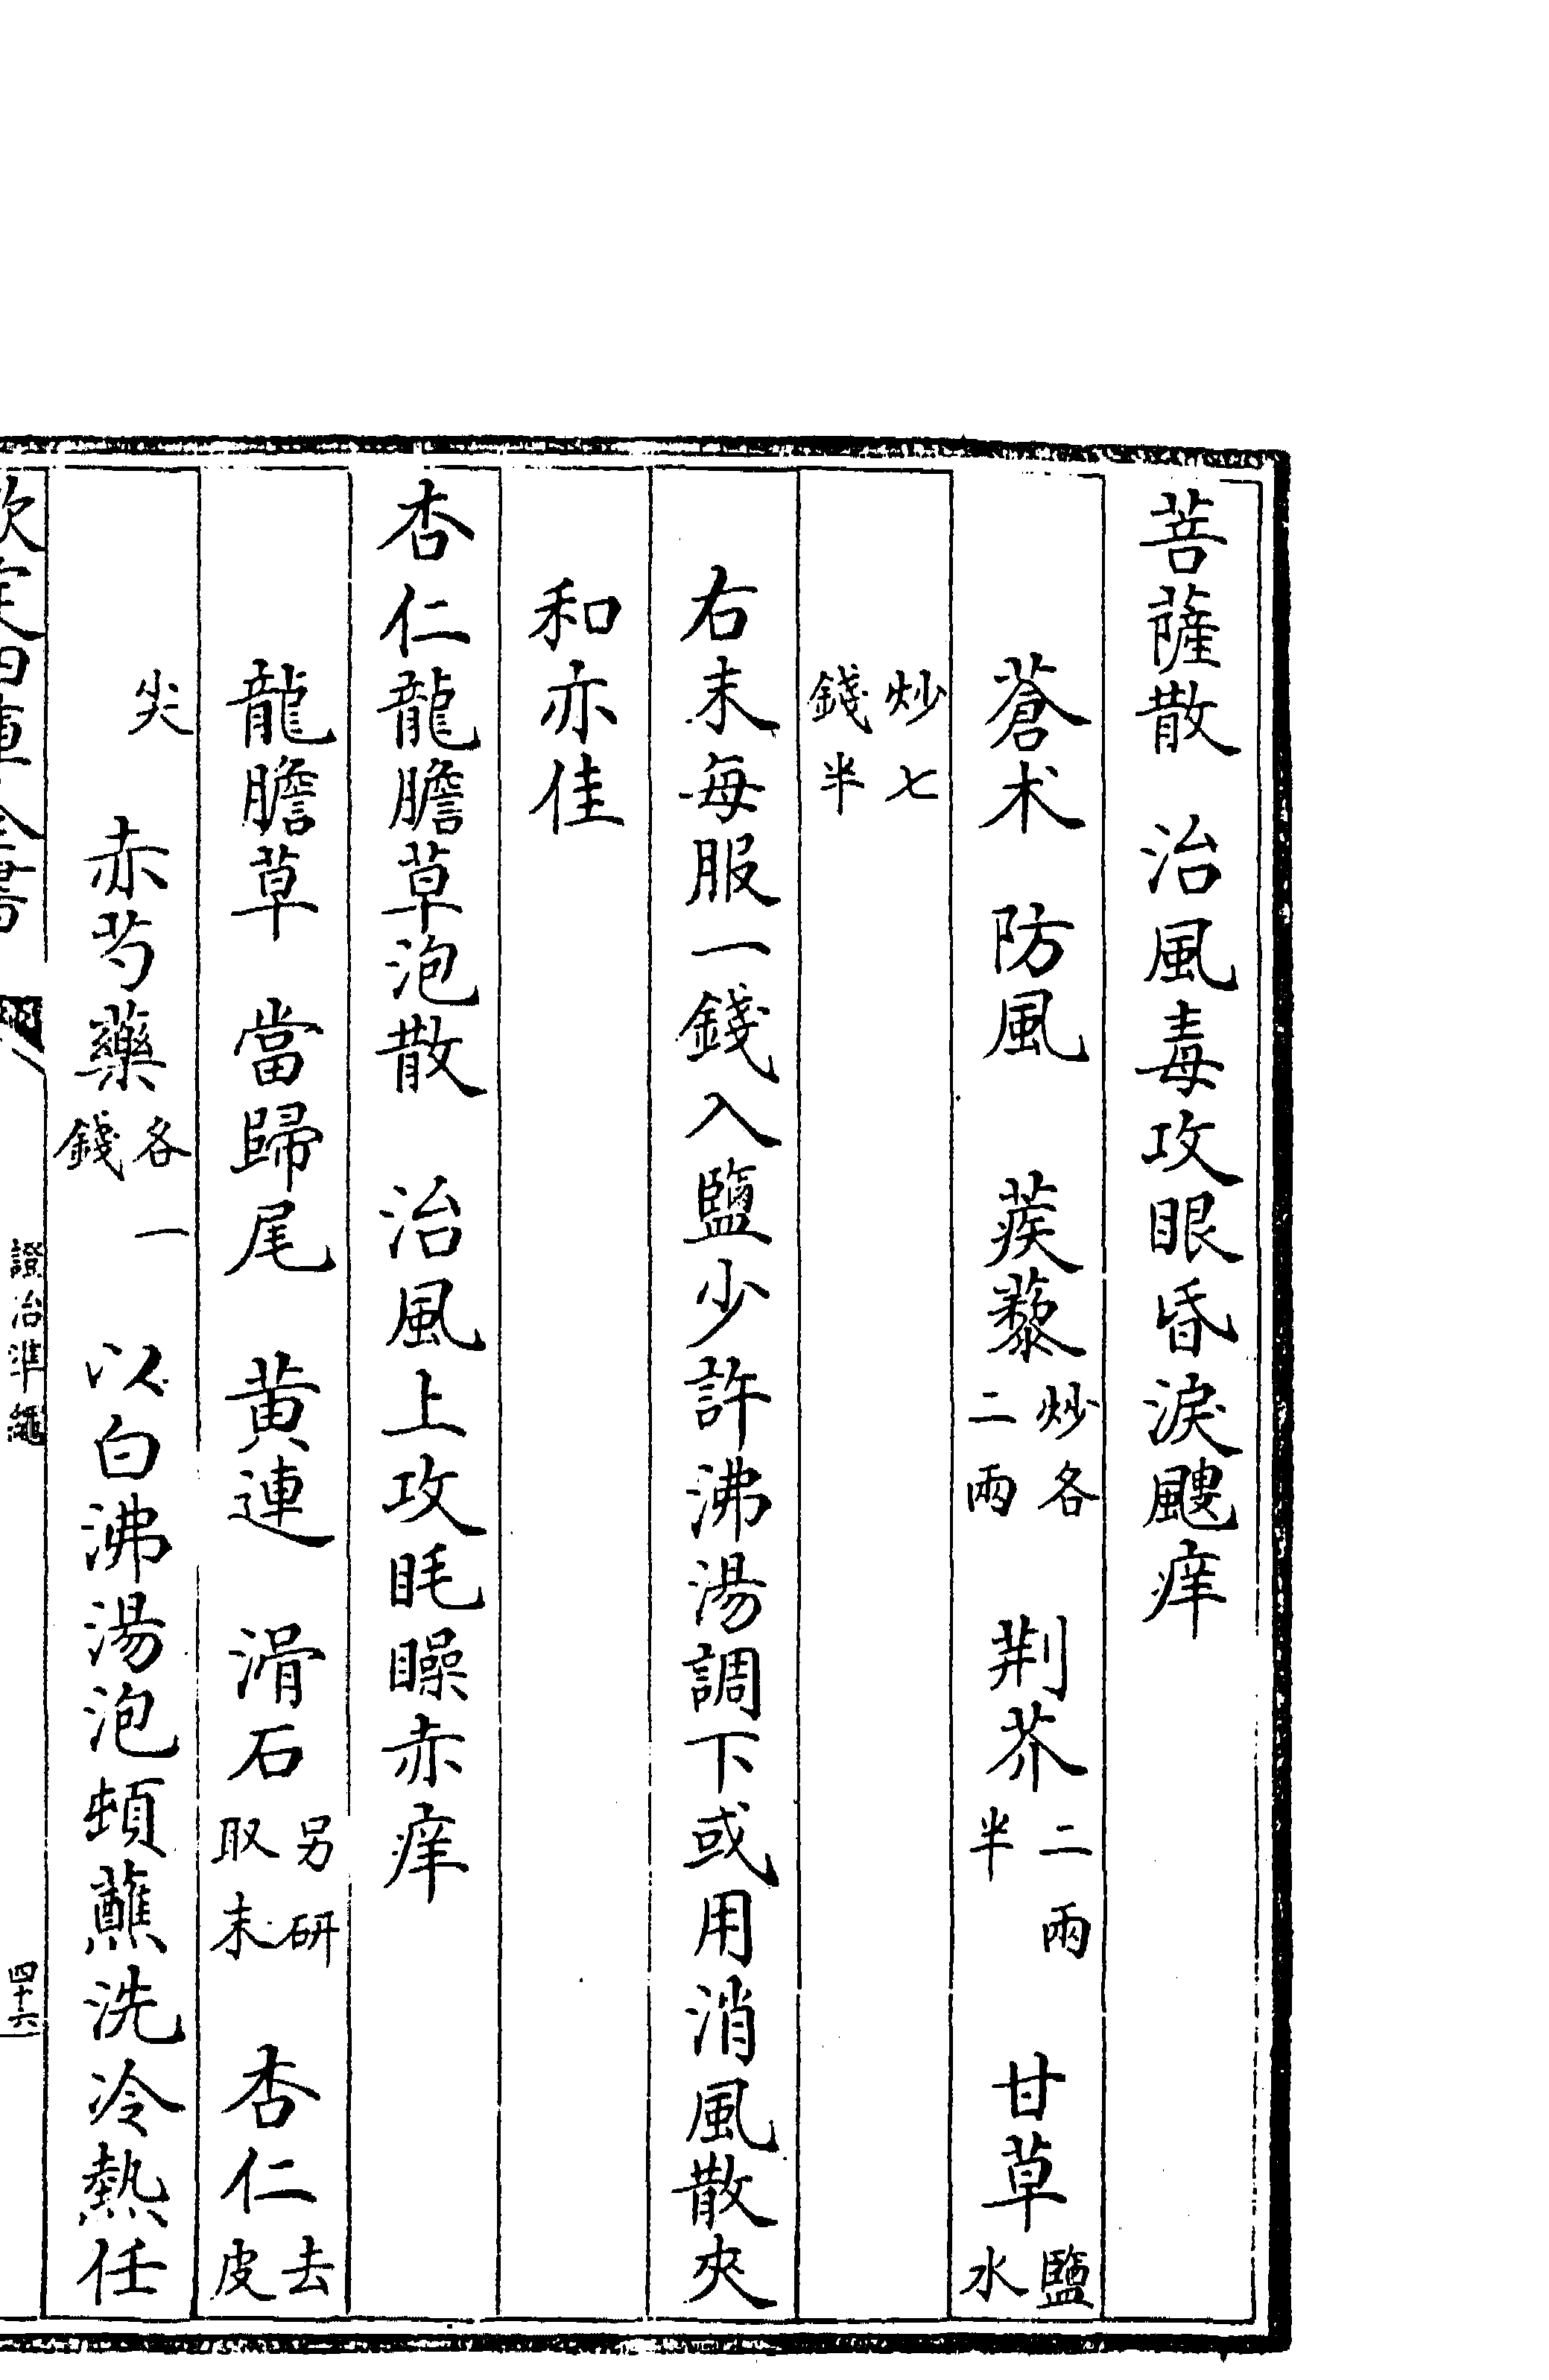 菩薩散　治風毒攻眼昏淚颼痒
蒼术　防風　蒺藜炒各二兩　荆芥二兩半　甘草鹽水
炒七錢半
右末每服一錢入鹽少許沸湯調下或用消風散夾
和亦佳
杏仁龍膽草泡散　治風上攻眊矂赤痒
龍膽草　當歸尾　黄連　滑石另研取末　杏仁去皮
尖　赤芍藥各一錢　以白沸湯泡頓蘸洗冷熱任
欽定四庫全書　證治準繩　四十六